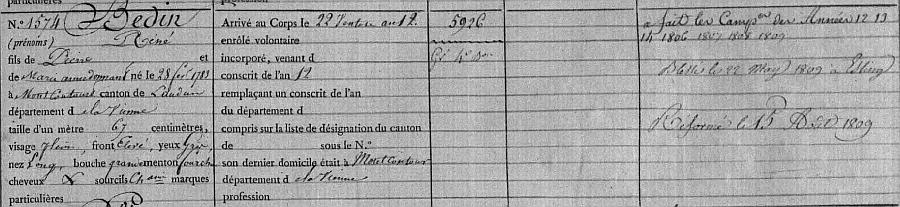 particulières
N.° 1574 Bedin
(prénoms) Réné
fils de Pierre et
de Marie né le 28 fév. 1783
à Montcontour canton de Loudun
département d e la Vienne
taille d'un mètre 67 centimètres,
visage plein, front Elevé, yeux Gris
nez Long, bouche grande menton fourchu
cheveux & sourcils Ch.ains marques
particulières
profession
Arrivé au Corps le 22 Ventose an 12.
enrôlé volontaire
incorporé, venant d
conscrit de l'an 12
remplaçant un conscrit de l'an
du département d
compris sur la liste de désignation du canton
de sous le N.°
son dernier domicile était à Montcontour
département d e la Vienne
profession
5926
a fait les Camp.es des Années 12 13
14 1806 1807 1808 1809
Blessé le 22 May 1809 à Esling
Réformé le 15 1809